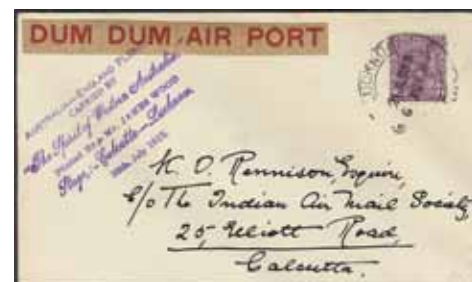 DUM DUM AIR PORT
AUSTRALIA-ENGLAND FLIGHT
CARRIED BY
"The Spirit of Western Australia"
JAMES WOOD
Stage:-Calcutta-Lucknow
July 1933.
K. D. Rennison, Esquire,
c/o The Indian Air Mail Society,
25, Elliott Road,
Calcutta.